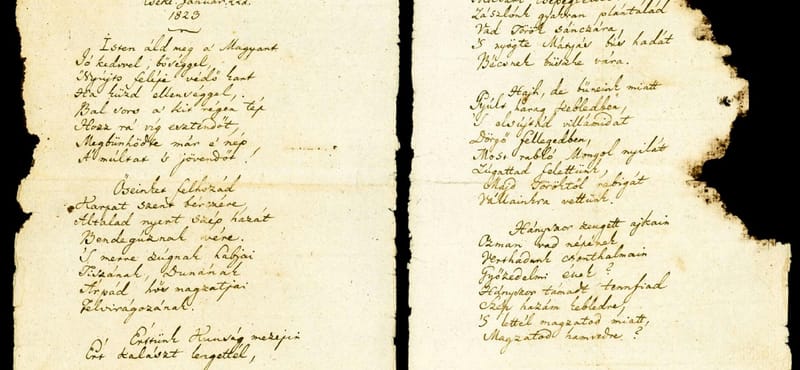 Cseke, Január 22d.
1823
Isten áld meg a Magyart
Jó kedvvel, bőséggel,
Nyújts feléje védő kart
Ha küzd ellenséggel,
Bal sors a kit régen tép
Hozz rá víg esztendőt,
Megbűnhődte már e' nép
A' múltat 's jövendőt!
Őseinket felhozád
Kárpát szent bérczére,
Általad nyert szép hazát
Bendegúznak vére.
'S merre zúgnak habjai
Tiszának, Dunának
Árpád hős magzatjai
Felvirágozának.
Értünk Kunság mezején
Ért kalászt lengettél,
Zászlónk gyakran plántálád
Vad Török sánczára,
'S nyögte Mátyás bús hadát
Bécsnek büszke vára.
Hajh, de bűneink miatt
Gyúlt harag kebledben,
'S elsújtád villámidat
Dörgő fellegedben,
Most rabló Mongol nyilát
Zúgattad felettünk,
Majd Töröktől rabigát
Vállainkra vettünk.
Hányszor zengett ajkain
Ozman vad népének
Vert hadunk csonthalmain
Győzedelmi ének?
Hányszor támadt tennfiad
Szép hazám kebledre,
'S lettél magzatod miatt,
Magzatod hamvedre?